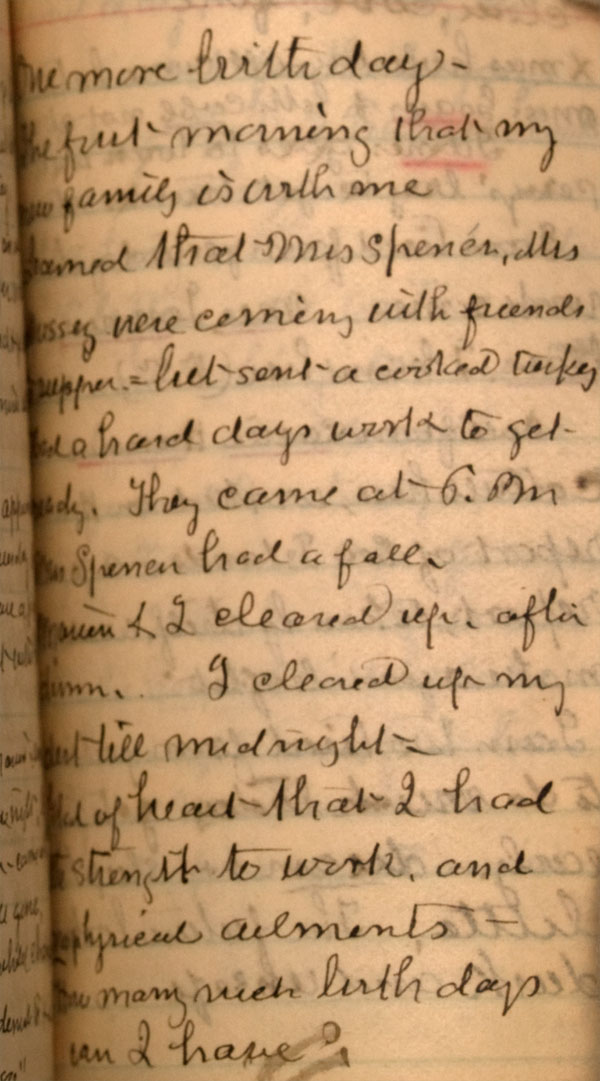 One more birth day -
The first morning that my
new family is with me
that Mrs Spencer, Mrs
were coming with friends
supper. = but sent a cooked turkey
had a hard days work to get
ready. They came at 6. P.M
Mrs Spencer had a fall.
& I cleared up. after
I cleared up my
till midnight -
of heart that I had
strength to work. and
physical ailments -
How many such birth days
can I have?